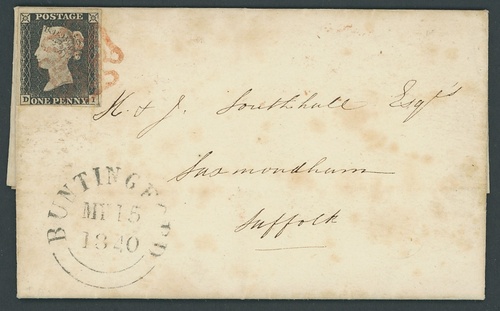 POSTAGE
D ONE PENNY I
H & J. Southall Esqrs
Saxmondham
Suffolk
BUNTINGFORD
MY 15
1840